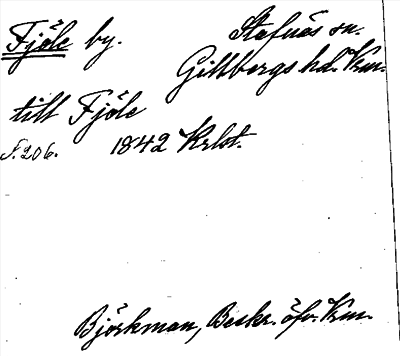 Fjöle by. Stafnäs sn.
Gillbergs hd. Vrm.
till Fjöle
S. 206. 1842 Krlst.
Björkman, Beskr. öfv. Vrm.